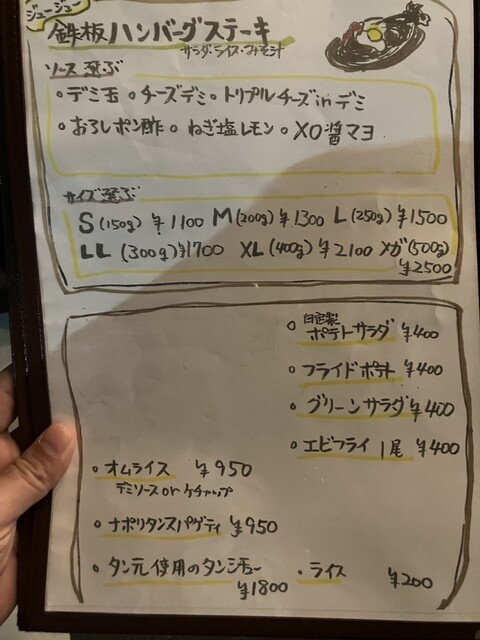 ジュージュー
鉄板ハンバーグステーキ
サラダ・ライス・みそ汁
ソース選ぶ
・デミ玉 ・チーズデミ・トリプルチーズinデミ
・おろしポン酢・ねぎ塩レモン・XO醤マヨ
サイズ選ぶ
S(150g) ¥1100 M(200g)¥1300 L(250g)¥1500
LL(300g)¥1700 XL(400g)¥2100 メガ(500g)
¥2500
・自家製
ポテトサラダ ¥400
・フライドポテト ¥400
・グリーンサラダ ¥400
・エビフライ 1尾 ¥400
・オムライス ¥950
デミソースorケチャップ
・ナポリタンスパゲティ ¥950
・タン元使用のタンシチュー
¥1800
・ライス ¥200